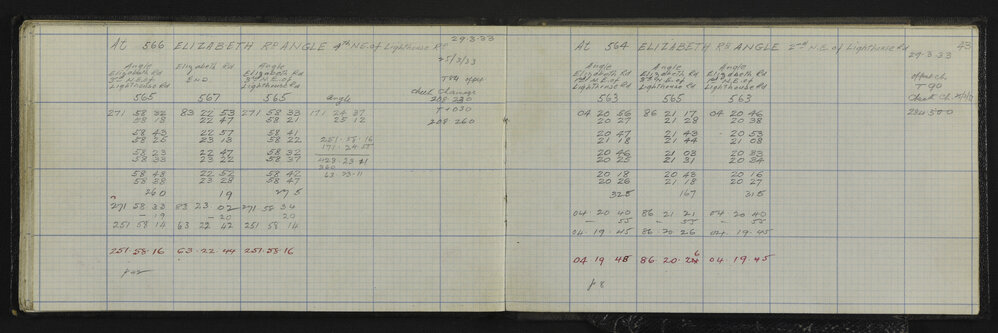 29.3.33
At 566 ELIZABETH RD ANGLE 4th N.E. of Lighthouse Rd
25/3/33
Angle Elizabeth Rd Angle
Elizabeth Rd END Elizabeth Rd
3rd N.E. of 3rd N.E. of
Lighthouse Rd Lighthouse Rd
565 567 565 Angle
Check Chainage
208 230
+ .030
208 260
271 58 32 83 22 53 271 58 33 171 24 37
58 18 22 47 58 21 25 12
58 43 22 57 58 41
58 25 23 13 58 22 251-58-16
171-24-55
58 23 22 47 58 32
58 33 23 22 58 37 423 23 11
360
58 42 22 52 58 42 63 23 11
58 38 23 28 58 47
260 19 275
271 58 33 83 23 02 271 58 34
- 19 - 20 20
251 58 14 63 22 42 251 58 14
251.58.16 63.22.44 251.58.16
43
At 564 ELIZABETH RD ANGLE 2nd N.E. of Lighthouse Rd
29.3.33
Angle Angle Angle
Elizabeth Rd Elizabeth Rd Elizabeth Rd
1st N.E. of 3rd N.E. of 1st N.E. of
Lighthouse Rd Lighthouse Rd Lighthouse Rd
563 565 563
T 90
04 20 56 86 21 17 04 20 46
20 27 21 28 20 38
20 47 21 43 20 53
21 18 21 44 21 08
20 46 21 03 20 33
20 25 21 31 20 34
20 18 20 43 20 16
20 26 21 18 20 27
325 167 315
04 20 40 86 21 21 04 20 40
- 55 - 55 - 55
04.19.45 86 20 26 04.19.45
04 19 45 86.20.26 04.19.45
p 8